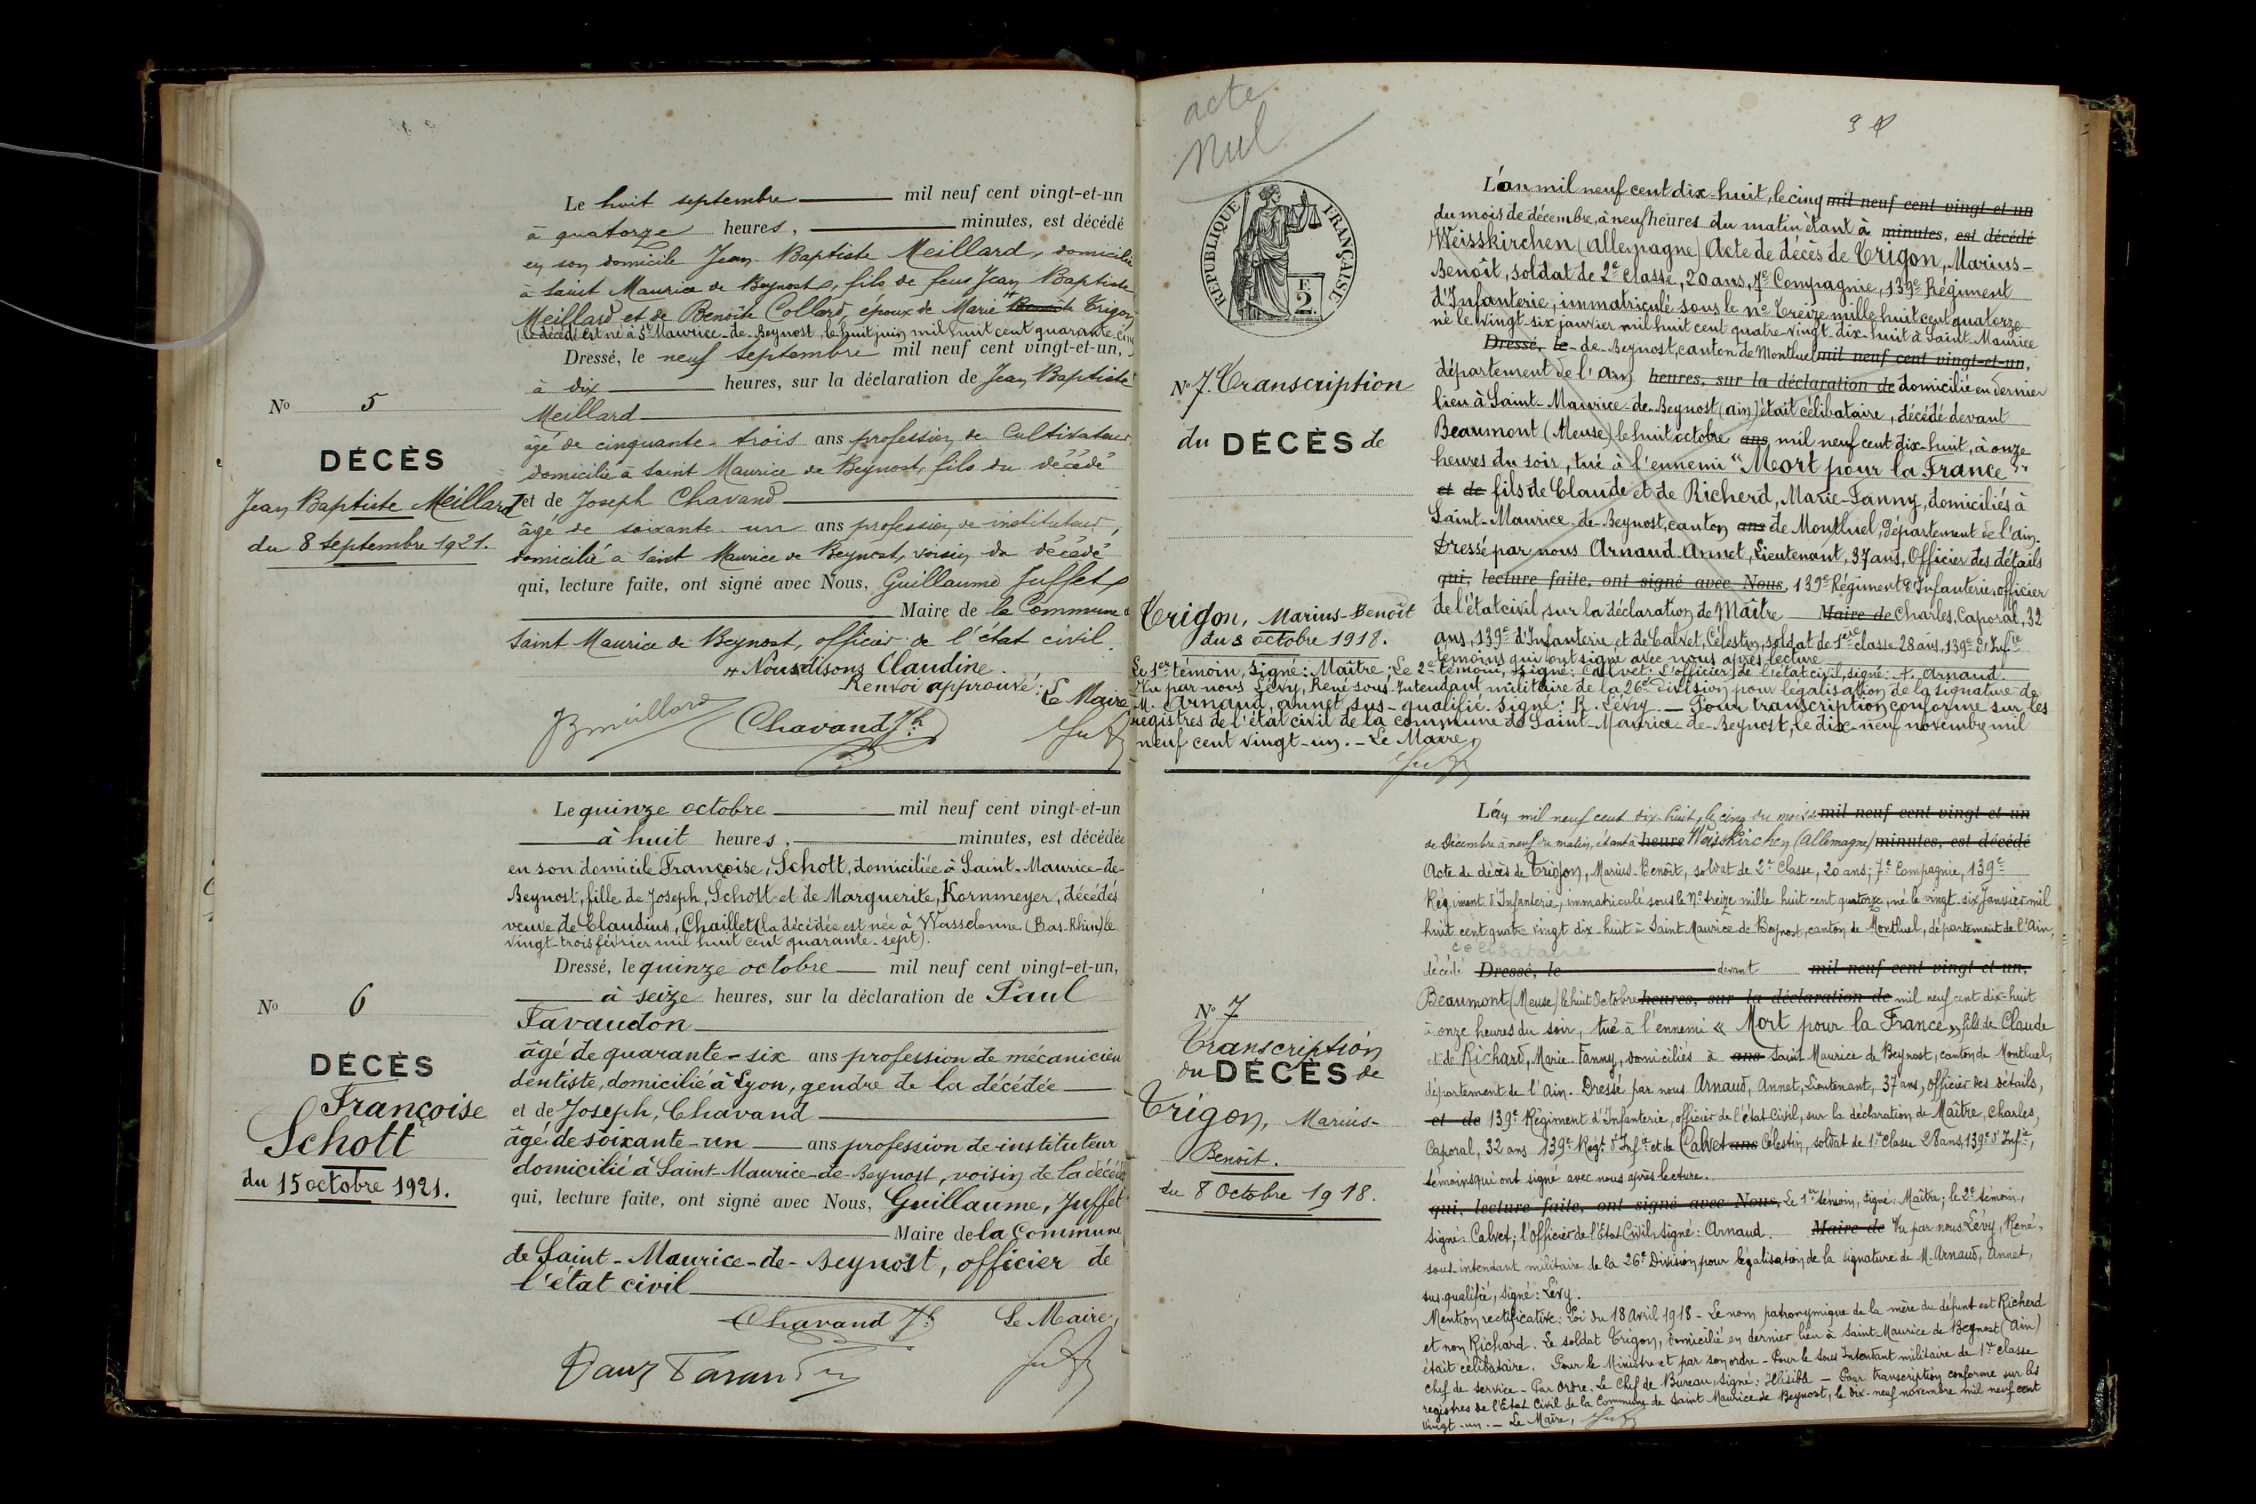 Le huit septembre mil neuf cent vingt-et-un
à quatorze heures, minutes, est décédé
en son domicile Jean Baptiste Meillard, domicilié
à Saint Maurice de Beynost, fils de feu Jean Baptiste
Meillard et de Benoîte Collard, époux de Marie + Benoîte Trigon
(le décédé est né à St Maurice-de-Beynost, le huit juin mil huit cent quarante-cinq)
Dressé, le neuf Septembre mil neuf cent vingt-et-un,
à dix heures, sur la déclaration de Jean Baptiste
Meillard
âgé de cinquante-trois ans profession de Cultivateur
domicilié à Saint Maurice de Beynost, fils du décédé
et de Joseph Chavand
âgé de soixante un ans profession de instituteur,
domicilié à Saint Maurice de Beynost, voisin du décédé
qui, lecture faite, ont signé avec Nous, Guillaume Juffet
Maire de la Commune de
Saint Maurice de Beynost, officier de l'état civil.
+ Nous disons Claudine.
Renvoi approuvé: Le Maire
JBmeillard Chavand Jh
No 5
DÉCÈS
Jean Baptiste Meillard
du 8 Septembre 1921.
Le quinze octobre mil neuf cent vingt-et-un
à huit heures, minutes, est décédée
en son domicile Françoise, Schott, domiciliée à Saint-Maurice-de-
Beynost, fille de Joseph, Schott et de Marguerite, Kornmeyer, décédés
veuve de Claudius, Chaillet (la décédée est née à Wasselonne (Bas-Rhin) le
vingt-trois février mil huit cent quarante-sept).
Dressé, le quinze octobre mil neuf cent vingt-et-un,
à seize heures, sur la déclaration de Paul
Favaudon
âgé de quarante-six ans profession de mécanicien
dentiste, domicilié à Lyon, gendre de la décédée
et de Joseph, Chavand
âgé de soixante-un ans profession de instituteur
domicilié à Saint-Maurice-de-Beynost, voisin de la décédée
qui, lecture faite, ont signé avec Nous, Guillaume, Juffet
Maire de la Commune
de Saint-Maurice-de-Beynost, officier de
l'état civil
Chavand Jh Le Maire,
No 6
DÉCÈS
Françoise
Schott
du 15 octobre 1921.
acte
nul
RÉPUBLIQUE FRANÇAISE
F.
2
No 7. Transcription
du DÉCÈS de
Trigon, Marius-Benoît
du 8 octobre 1918.
L'an mil neuf cent dix-huit, le cinq mil neuf cent vingt et un
du mois de décembre, à neuf heures du matin étant à minutes, est décédé
Weisskirchen (Allemagne) Acte de décès de Trigon, Marius-
Benoît, soldat de 2e classe, 20 ans, 7e Compagnie, 139e Régiment
d'Infanterie, immatriculé sous le no treize mille huit cent quatorze
né le vingt-six janvier mil huit cent quatre-vingt-dix-huit à Saint-Maurice
Dressé, le -de-Beynost, canton de Montluel mil neuf cent vingt-et-un,
département de l'Ain heures, sur la déclaration de domicilié en dernier
lieu à Saint-Maurice-de-Beynost (ain) était célibataire, décédé devant
Beaumont (Meuse) le huit octobre ans mil neuf cent dix-huit, à onze
heures du soir, tué à l'ennemi "Mort pour la France"
et de fils de Claude et de Richerd, Marie-Fanny, domiciliés à
Saint-Maurice-de-Beynost, canton ans de Montluel, département de l'Ain.
Dressé par nous Arnaud Annet, Lieutenant, 37 ans, Officier des détails
qui, lecture faite, ont signé avec Nous, 139e Régiment d'Infanterie, officier
de l'état civil, sur la déclaration de Maître Maire de Charles, Caporal, 32
ans, 139e d'Infanterie et de Calvet, Célestin, soldat de 1ere classe 28 ans, 139e d'Infie
témoins qui ont signé avec nous après lecture
Le 1er témoin, signé: Maître; Le 2e témoin, signé: Calvet; L'officier de l'état civil, signé: A. Arnaud.
Vu par nous Lévy, René sous-Intendant militaire de la 26e division pour légalisation de la signature de
M. Arnaud, annet, sus-qualifié. Signé: R. Lévy. — Pour transcription conforme sur les
registres de l'état civil de la commune de Saint-Maurice-de-Beynost, le dix-neuf novembre mil
neuf cent vingt-un. — Le Maire,
No 7
Transcription
du DÉCÈS de
Trigon, Marius-
Benoît.
du 8 Octobre 1918.
L'an mil neuf cent dix-huit, le cinq du mois mil neuf cent vingt et un
de Décembre à neuf du matin, étant à heure Weisskirchen (Allemagne) minutes, est décédé
Acte de décès de Trigon, Marius-Benoît, soldat de 2e Classe, 20 ans; 7e Compagnie, 139e
Régiment d'Infanterie, immatriculé sous le No treize mille huit cent quatorze, né le vingt-six Janvier mil
huit cent quatre vingt dix-huit à Saint Maurice de Beynost, canton de Montluel, département de l'Ain,
célibataire
décédé Dressé, le devant mil neuf cent vingt et un,
Beaumont (Meuse) le huit Octobre heures, sur la déclaration de mil neuf cent dix-huit
à onze heures du soir, tué à l'ennemi « Mort pour la France », fils de Claude
et de Richard, Marie-Fanny, domiciliés à ans Saint Maurice de Beynost, canton de Montluel,
département de l'Ain. Dressé par nous Arnaud, Annet, Lieutenant, 37 ans, officier des détails,
et de 139e Régiment d'Infanterie, officier de l'état Civil, sur la déclaration de Maître, Charles,
Caporal, 32 ans 139e Regt d'Infie et de Calvet ans Célestin, soldat de 1re Classe 28 ans, 139e d'Infie,
témoins qui ont signé avec nous après lecture.
qui, lecture faite, ont signé avec Nous, Le 1er témoin, signé: Maître; le 2e témoin,
signé: Calvet; l'Officier de l'Etat Civil, signé: Arnaud. Maire de Vu par nous Lévy, René,
sous-intendant militaire de la 26e Division pour légalisation de la signature de M. Arnaud, Annet,
sus-qualifié, signé: Lévy.
Mention rectificative: Loi du 18 Avril 1918 - Le nom patronymique de la mère du défunt est Richerd
et non Richard. Le soldat Trigon, domicilié en dernier lieu à Saint-Maurice de Beynost (Ain)
était célibataire. Pour le Ministre et par son ordre - Pour le Sous Intendant militaire de 1re classe
Chef de service - Par Ordre. Le Chef de Bureau, signé: Illisible — Pour transcription conforme sur les
registres de l'Etat Civil de la Commune de Saint Maurice de Beynost, le dix-neuf novembre mil neuf cent
vingt-un. — Le Maire,